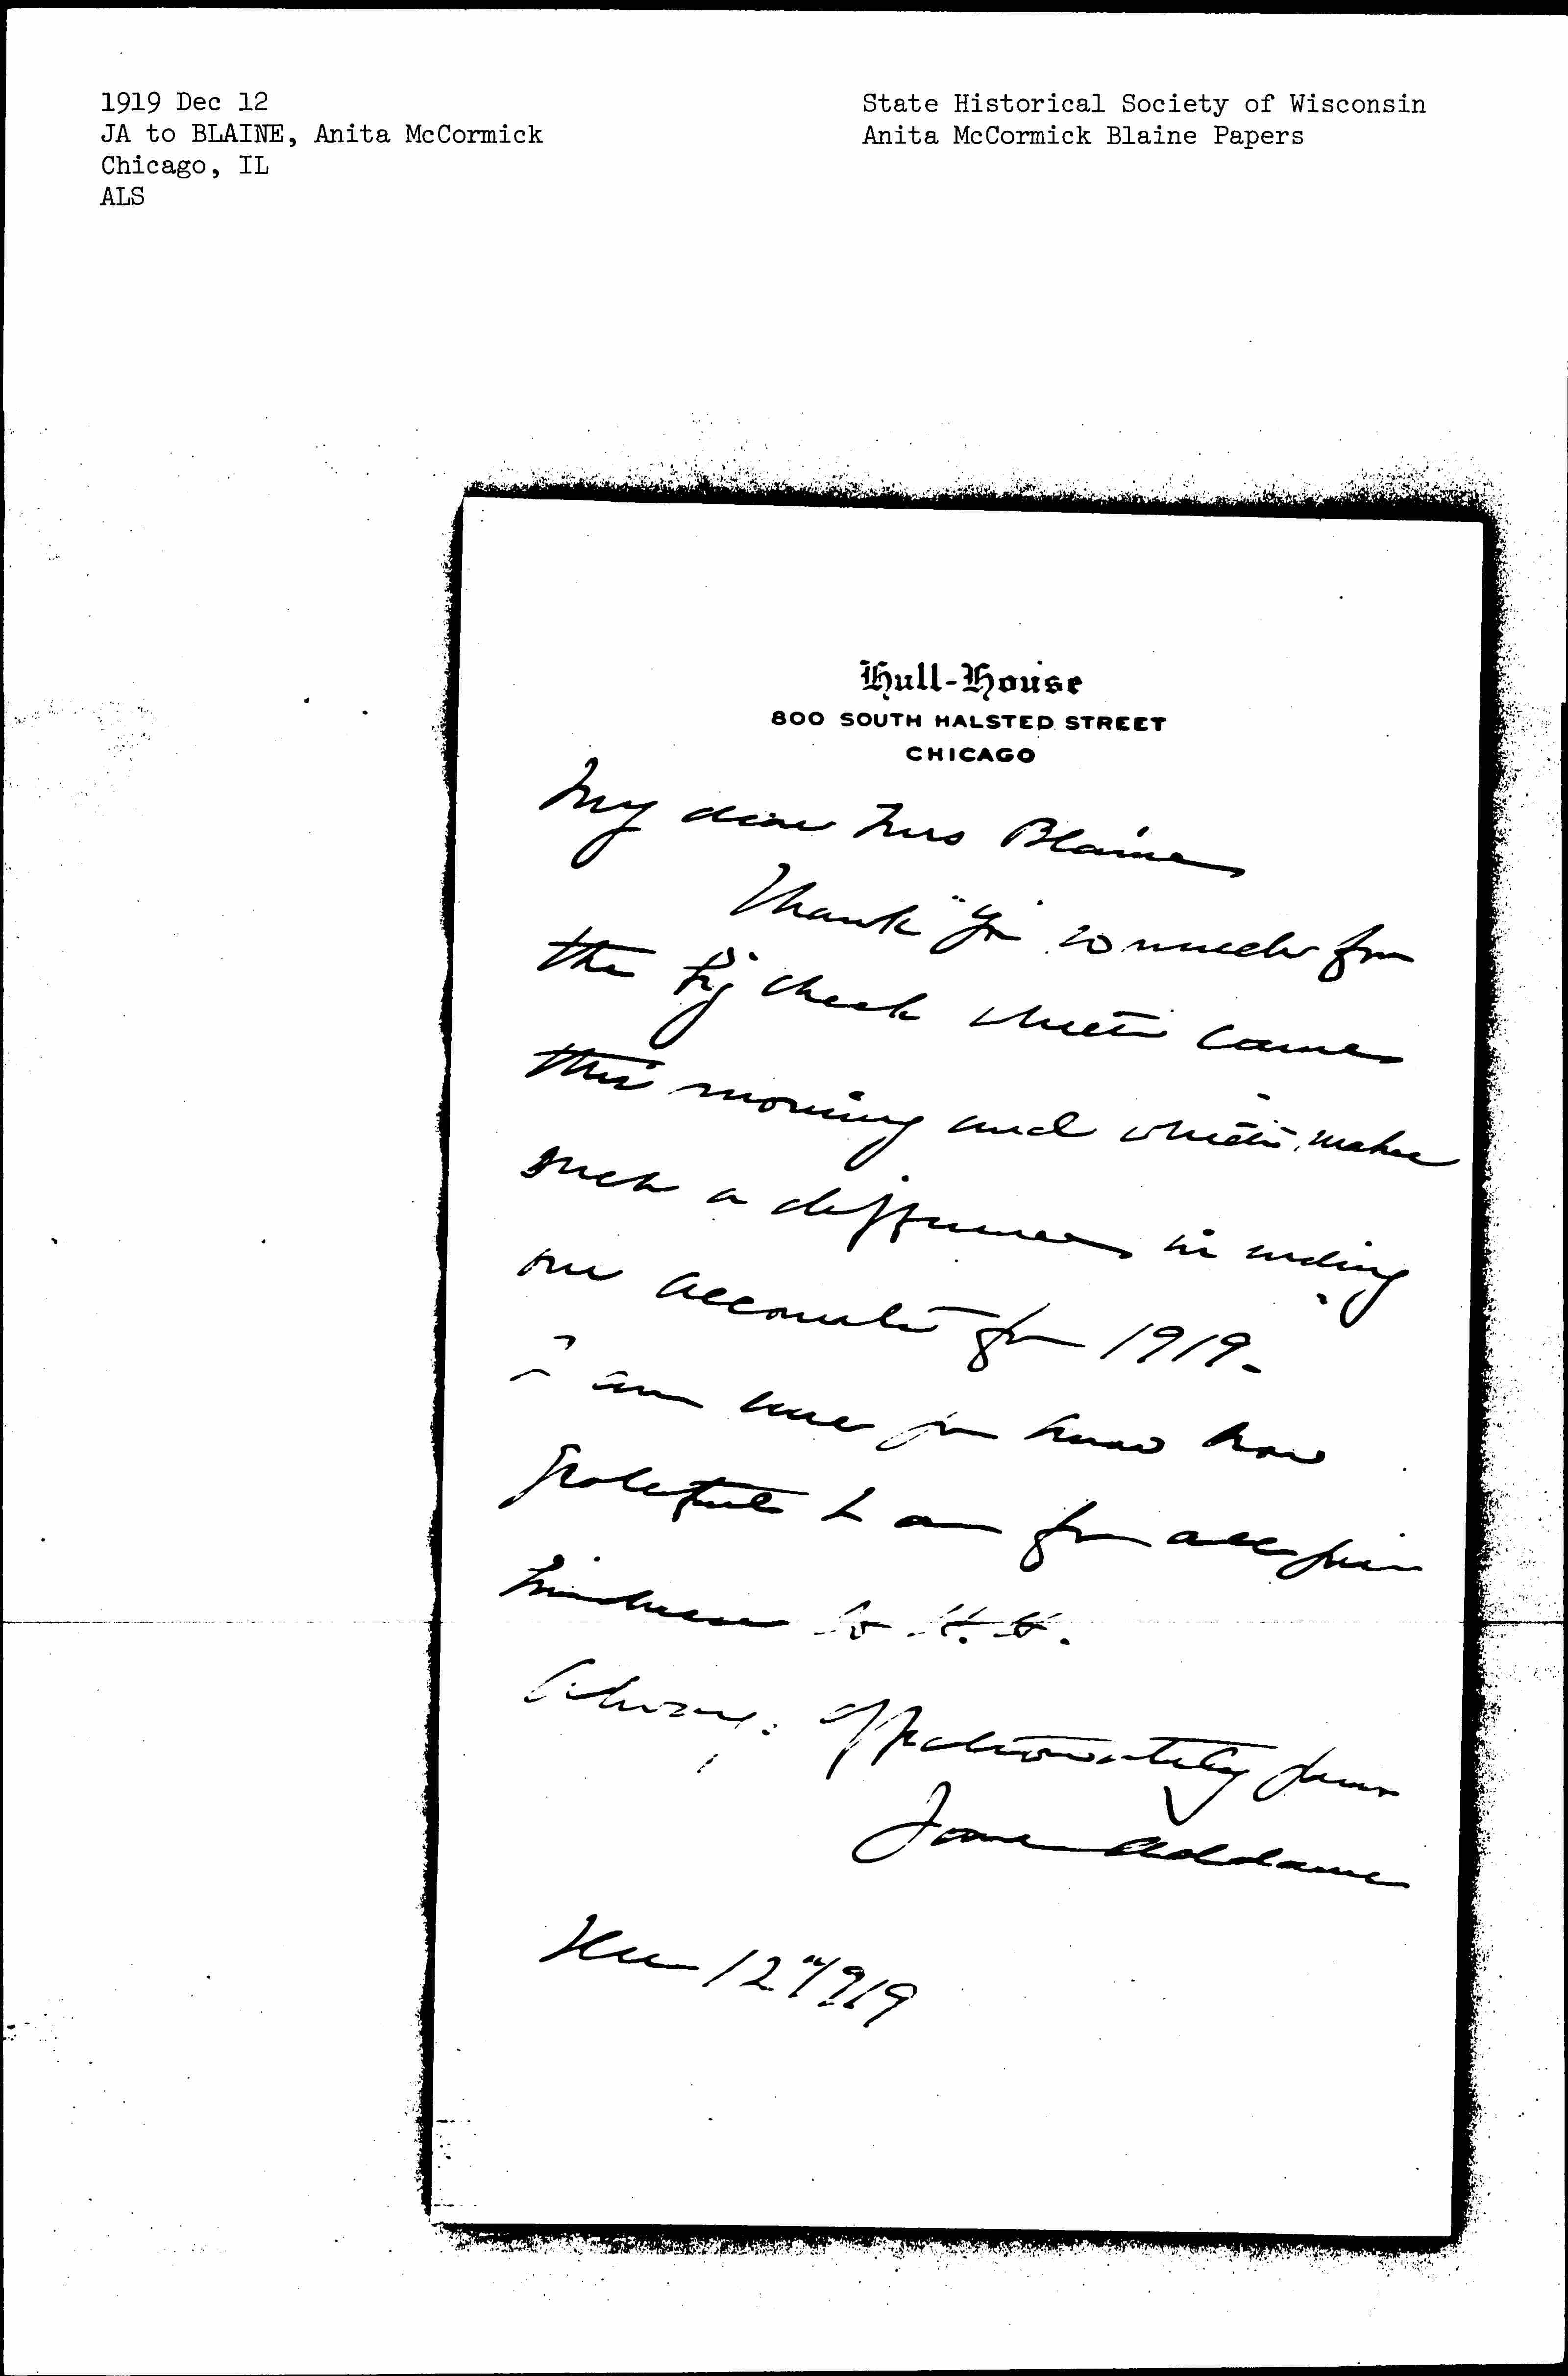 1919 Dec 12
JA to BLAINE, Anita McCormick
Chicago, IL
ALS
State Historical Society of Wisconsin
Anita McCormick Blaine Papers
Hull-House
800 SOUTH HALSTED STREET
CHICAGO
My dear Mrs Blaine
Thank you so much for
the big check which came
this morning and which makes
such a difference in ending
our accounts for 1919-
I am sure you know how
grateful I am for all your
kindness to H.H.
Always affectionately yours
Jane Addams
Dec 12" 1919